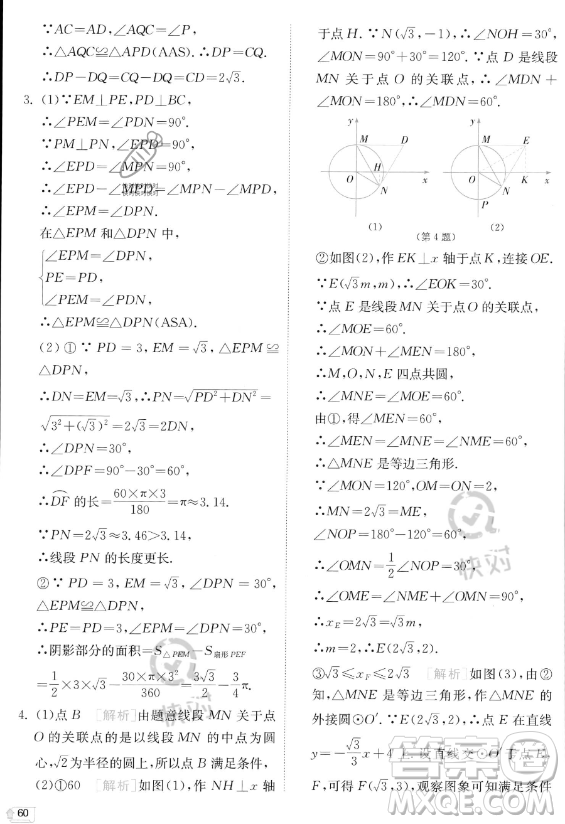 ∵AC=AD，∠ACQ=∠P，
∴△AQC≌△APD(AAS). ∴DP=CQ.
∴DP-DQ=CQ-DQ=CD=2√3.
3. (1)∵EM⊥PE，PD⊥BC，
∴∠PEM=∠PDN=90°.
∵PM⊥PN，∴∠MPN=90°.
∴∠EPD=∠MPN=90°.
∴∠EPD-∠MPD=∠MPN-∠MPD，
∴∠EPM=∠DPN.
在△EPM和△DPN中，
∠EPM=∠DPN，
PE=PD，
∠PEM=∠PDN，
∴△EPM≌△DPN(ASA).
(2)①∵PD=3，EM=√3，△EPM≌
△DPN，
∴DN=EM=√3，∴PN=√(PD²+DN²)=
√(3²+(√3)²)=2√3=2DN.
∴∠DPN=30°，
∴∠DPF=90°-30°=60°.
∴DF的长=60×π×3/180=π≈3.14.
∵PN=2√3≈3.46>3.14，
∴线段PN的长度更长.
②∵PD=3，EM=√3，∠DPN=30°，
△EPM≌△DPN，
∴PE=PD=3，∠EPM=∠DPN=30°，
∴阴影部分的面积=S△PEM-S扇形PEF
=1/2×3×√3-30×π×3²/360=3√3/2-3/4π.
(1)点B [解析]由题意线段MN关于点
O的关联点的是以线段MN的中点为圆
心，√2为半径的圆上，所以点B满足条件.
(2)①60 [解析]如图(1)，作NH⊥x轴
60
于点H. ∵N(√3/2，-1/2)，∴∠NOH=30°，
∠MON=90°+30°=120°. ∵点D是线段
MN关于点O的关联点，∴∠MDN+
∠MON=180°，∴∠MDN=60°.
y
M
D
H
O
N
x
(1)
y
M
E
O
K
N
P
x
(2)
(第4题)
②如图(2)，作EK⊥x轴于点K，连接OE.
∵E(√3m，m)，∴∠EOK=30°.
∵点E是线段MN关于点O的关联点，
∴∠MOE=60°.
∵∠MON+∠MEN=180°，
∴M、O、N、E四点共圆，
∴∠MNE=∠MOE=60°.
由①，得∠MEN=60°，
∴∠MEN=∠MNE=60°，
∴△MNE是等边三角形.
∵∠MON=120°，OM=ON=2，
∠NOP=180°-120°=60°，
∴∠OMN=1/2∠NOP=30°.
∴∠OME=∠OMN+∠NME=90°，
∴x_E=2√3=√3m，∴m=2.
③√3≤x_F≤2√3 [解析]如图(3)，由②
知，△MNE是等边三角形，作△MNE的
外接圆⊙O′. ∵E(2√3，2)，∴点E在直线
y=-√3/3x+4上，设直线交⊙O′于点E、
F，可得F(√3，3)，观察图象可知满足条件
快对